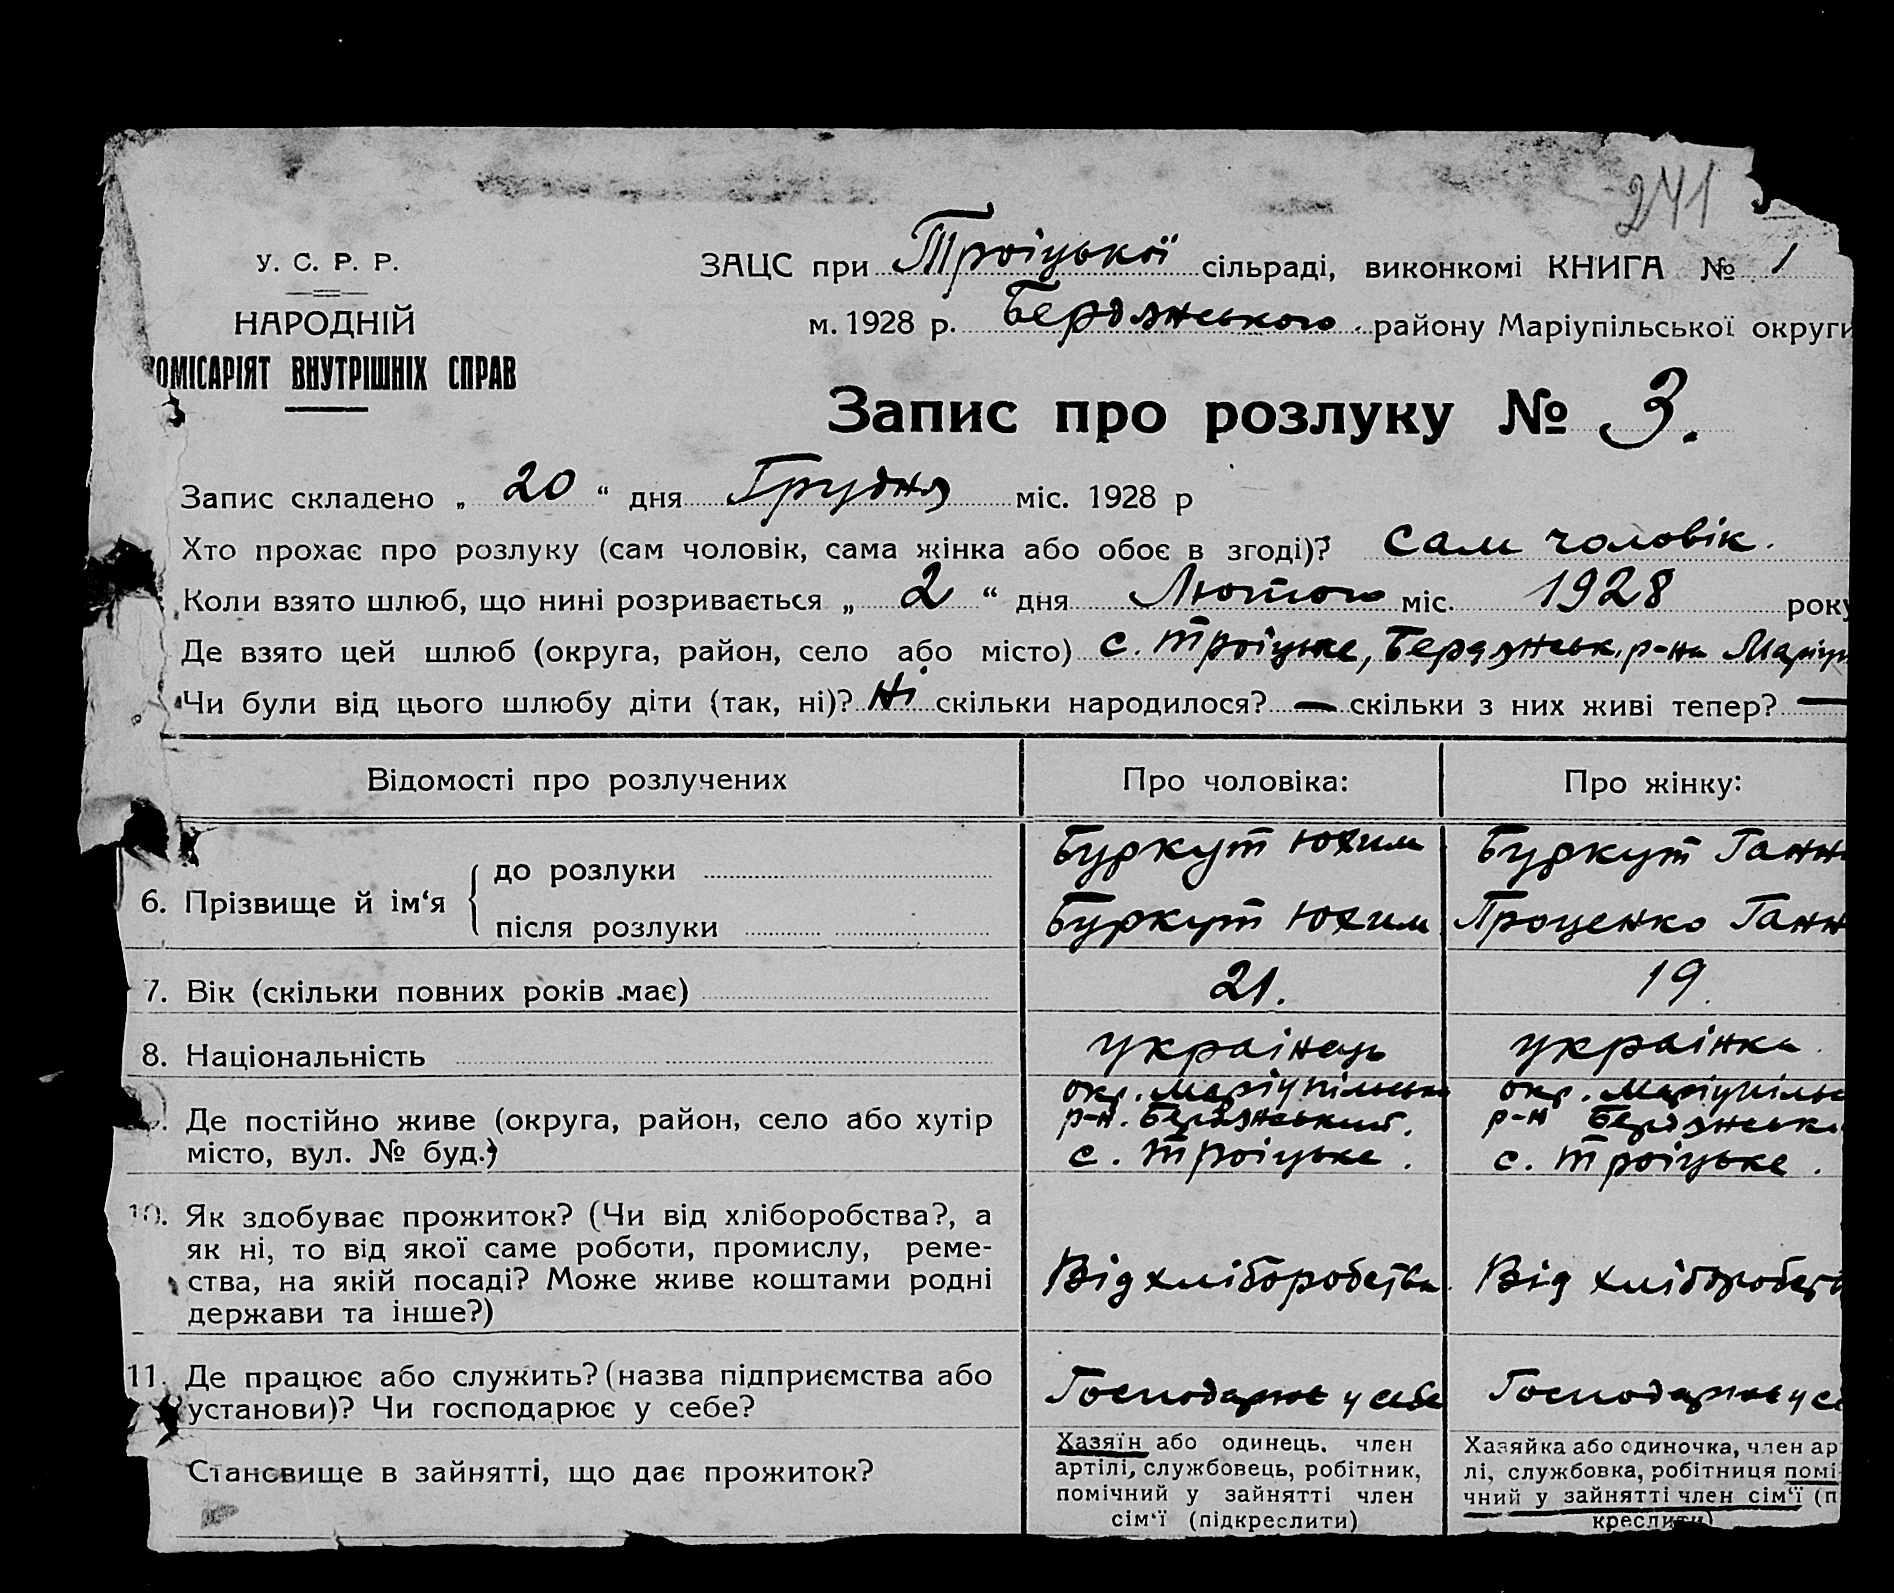 241
У. С. Р. Р.
НАРОДНІЙ
КОМІСАРІЯТ ВНУТРІШНІХ СПРАВ
ЗАЦС при Троіцької сільраді, виконкомі КНИГА № 1
м. 1928 р. Бердянського району Маріупільської округи
Запис про розлуку № 3.
Запис складено „ 20 “ дня Грудня міс. 1928 р
Хто прохає про розлуку (сам чоловік, сама жінка або обоє в згоді)? Сам чоловік.
Коли взято шлюб, що нині розривається „ 2 “ дня Лютого міс. 1928 року
Де взято цей шлюб (округа, район, село або місто) с. Троіцьке, Бердянськ. р-на Маріуп
Чи були від цього шлюбу діти (так, ні)? Ні скільки народилося? — скільки з них живі тепер? —
Відомості про розлучених Про чоловіка: Про жінку:
6. Прізвище й ім‘я
до розлуки Буркут Юхим Буркут Ганн
після розлуки Буркут Юхим Проценко Ганн
7. Вік (скільки повних років має) 21. 19.
8. Національність украінець украінка
Де постійно живе (округа, район, село або хутір
місто, вул. № буд.)
окр. Маріупільська
р-н. Бердянський.
с. Троіцьке.
окр. Маріупільс
р-н Бердянськи
с. Троіцьке.
10. Як здобуває прожиток? (Чи від хліборобства?, а
як ні, то від якої саме роботи, промислу, реме-
ства, на якій посаді? Може живе коштами родні
держави та інше?)
Від хліборобства
Від хліборобств
11. Де працює або служить? (назва підприємства або
установи)? Чи господарює у себе?
Господарює у себе
Господарює у се
Становище в зайнятті, що дає прожиток?
Хазяїн або одинець, член
артілі, службовець, робітник,
помічний у зайнятті член
сім‘ї (підкреслити)
Хазяйка або одиночка, член ар
лі, службовка, робітниця помі
чний у зайнятті член сім‘ї (п
креслити)